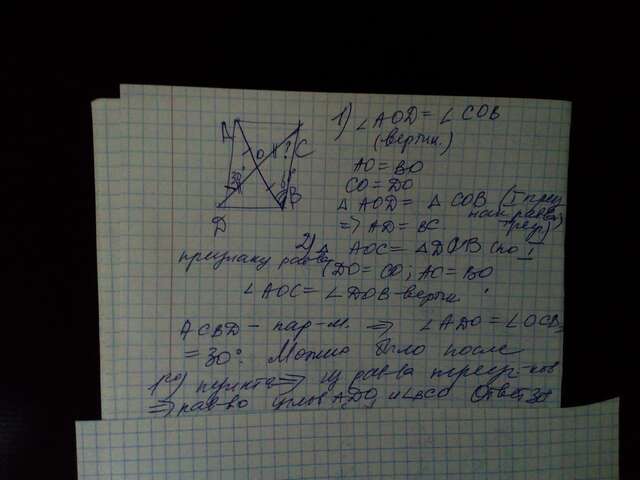 A
O
?
C
30°
B
D
1) ∠AOD = ∠COB
(вертик.)
AO = BO
CO = DO
△ AOD = △ COB (I приз
нак рав-ва
треуг.)
=> AD = BC.
2) △ AOC = △ DOB (по I
признаку рав-ва
(DO = CO; AO = BO
∠AOC = ∠DOB - вертик.
ACBD - пар-м. => ∠ADO = ∠OCB
= 30°. Можно было после
1го пункта => из рав-ва треуг-ков
=> рав-во углов ADO и BCO Ответ 30°